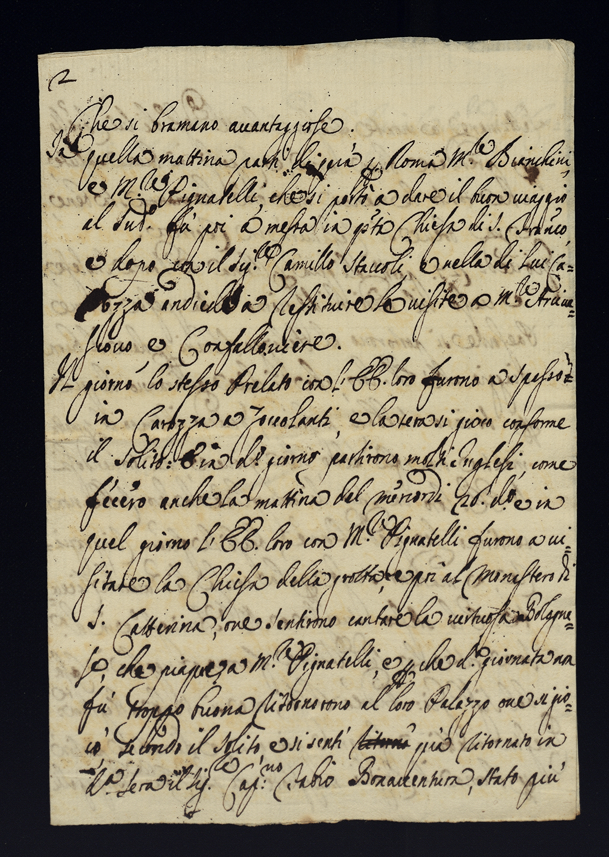 2
che si bramano auantaggiose.
In quella mattina partì di già p Roma M.re Bianchini,
e M.re Pignatelli, che si portò a dare il buon uiaggio
al Sud.o fù poi à messa in p.ta Chiesa di S. Franco,
e dopo con il Sig.re Camillo Staccoli, e nella di lui Ca=
rozza andiede a restituire le uisite a M.re Arciue=
scouo, e Confalloniere.
Il giorno lo stesso Prelato con l'EE. loro furono a spasso
in Carozza a Zoccolanti, e la sera si giocò conforme
il solito: e in d.o giorno partirono molti Inglesi, come
fecero anche la mattina del mercordì 26. d.o e in
quel giorno l'EE. loro con M.re Pignatelli furono a ui=
sitare la Chiesa della grotta, e poi al Monastero di
S. Catterina, oue sentirono cantare la uirtuosa Bologne=
se, che piacque a M.re Pignatelli, e p che d.a giornata non
fù troppo buona ritornorono al loro Palazzo oue si gio=
cò secondo il solito, e si sentì già ritornato in
d.a sera il Sig.re Cap.no Fabio Bonauentura, stato più